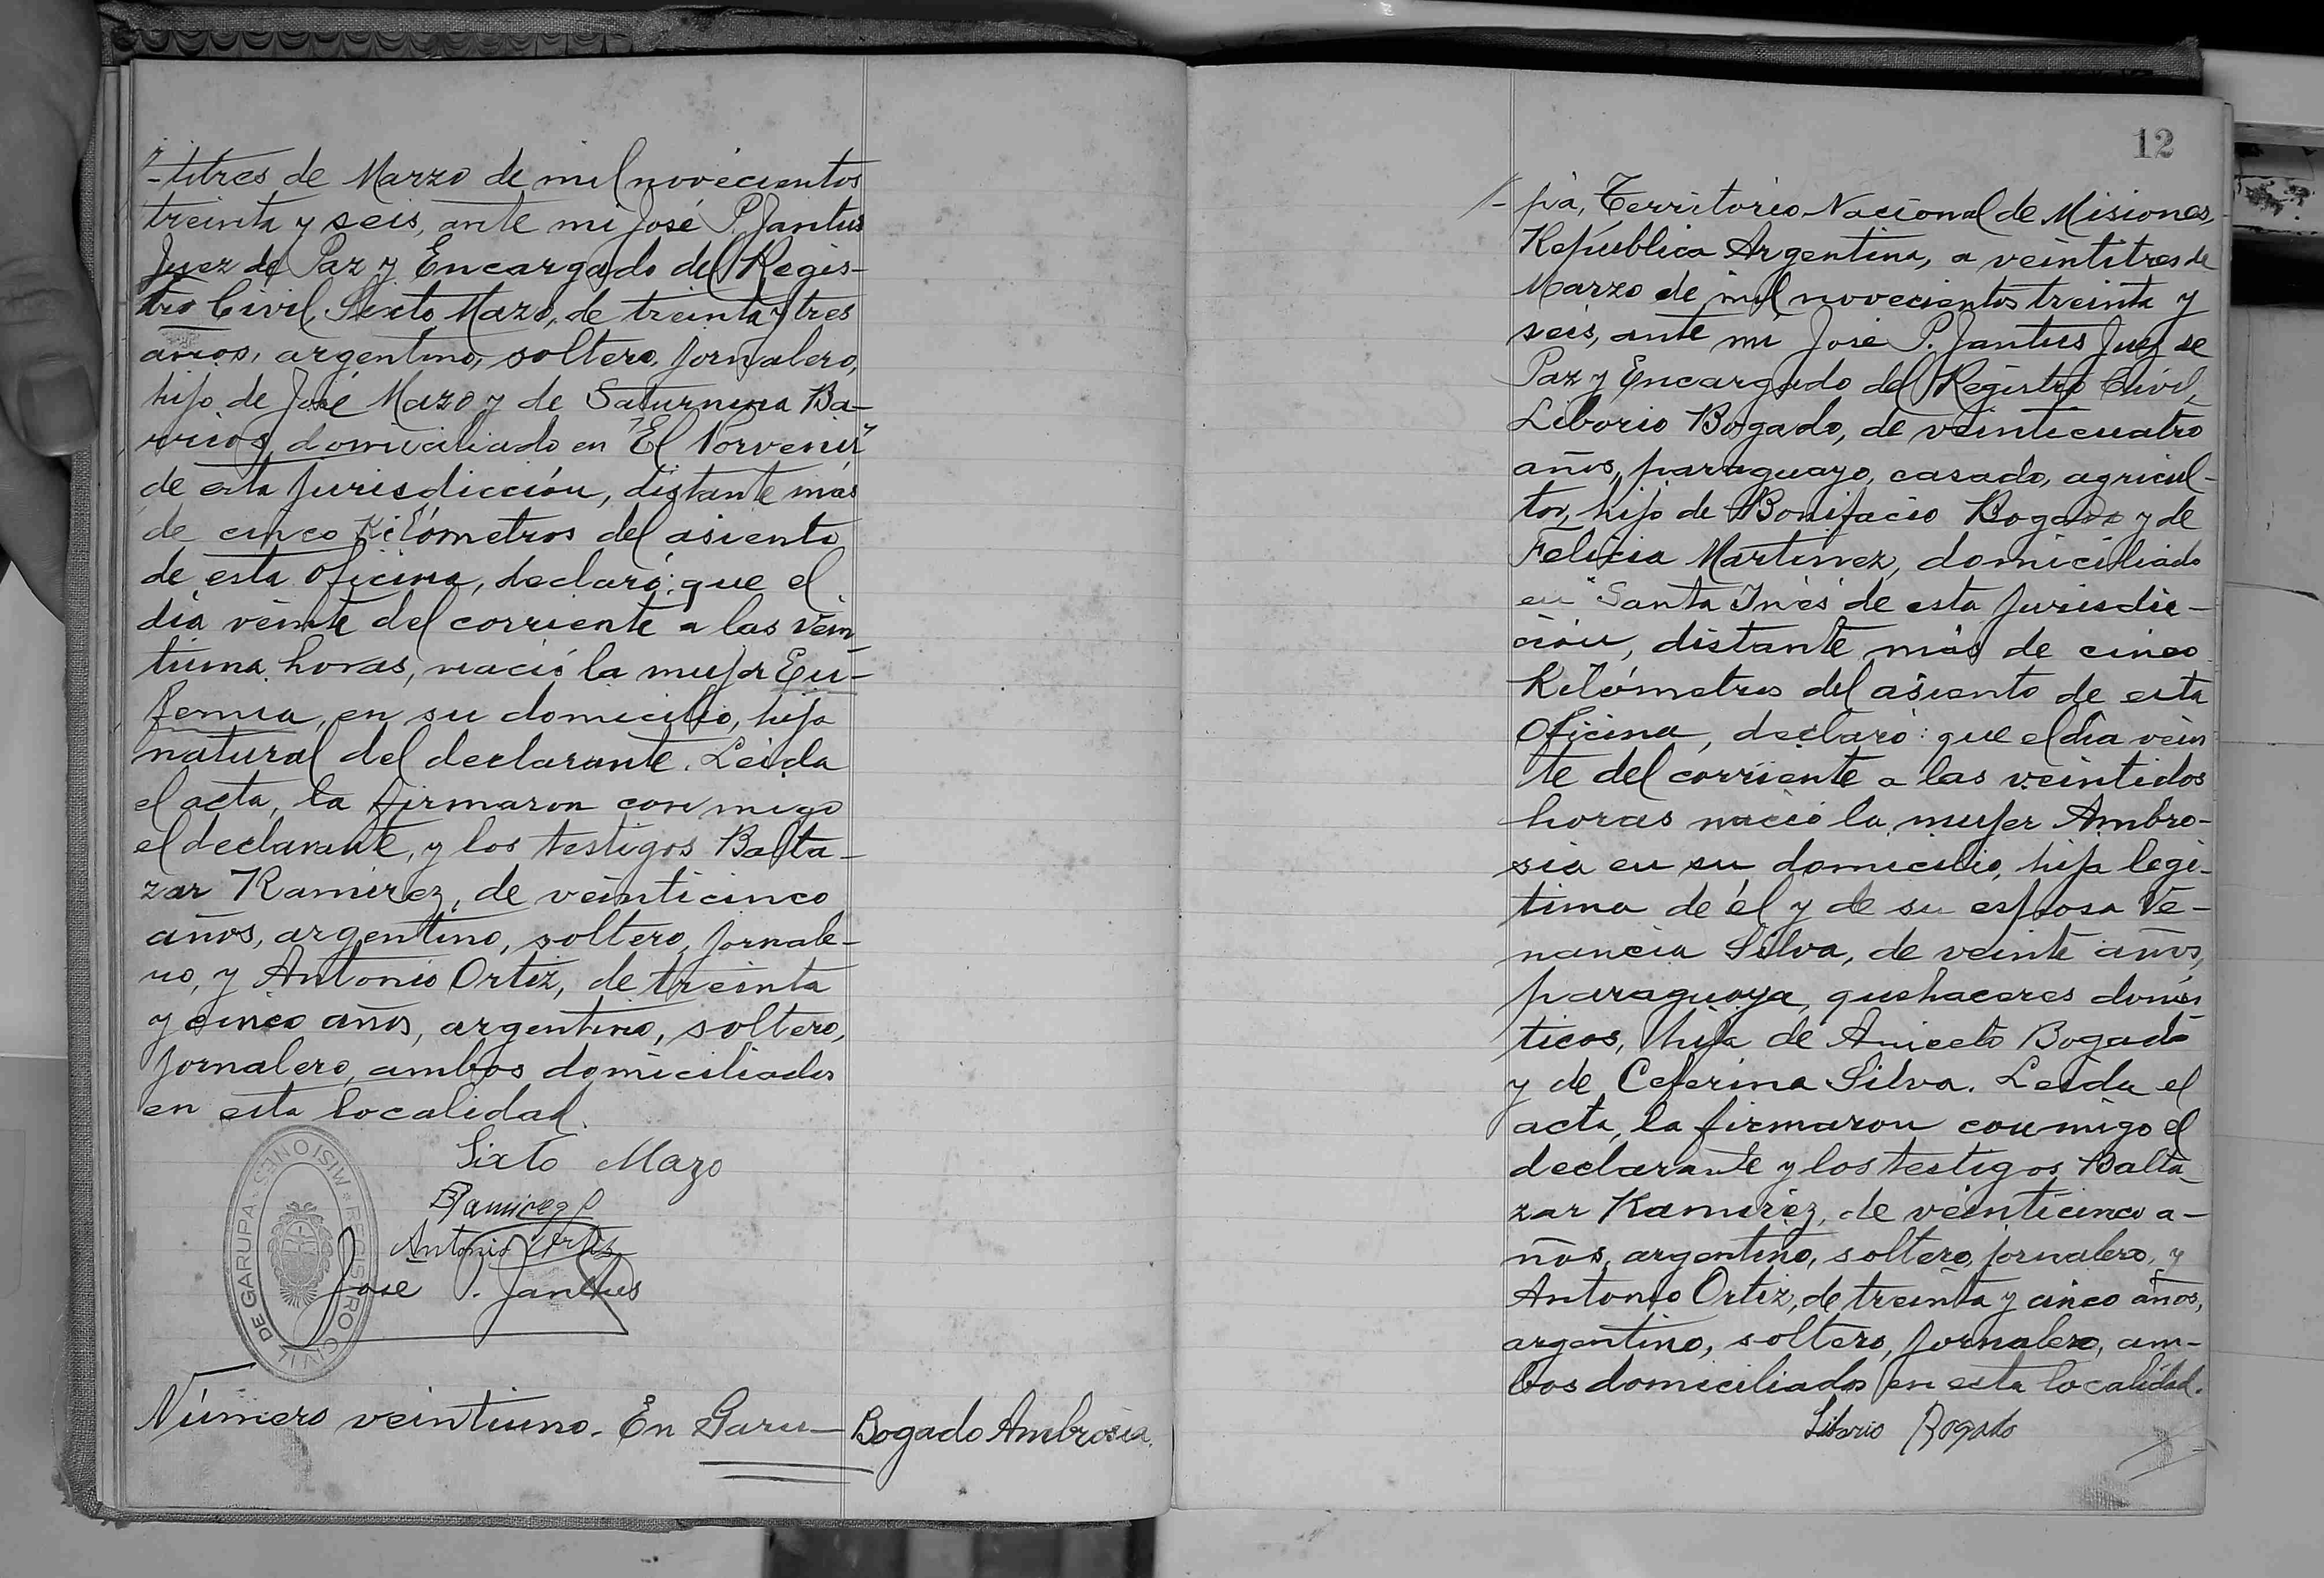 -titres de Marzo de mil novecientos
treinta y seis, ante mi José P. Jantus
Juez de Paz y Encargado del Regis-
tro Civil, Sixto Mazo, de treinta y tres
años, argentino, soltero, jornalero,
hijo de José Mazo y de Saturnina Ba-
rrios, domiciliado en "El Porvenir"
de esta jurisdicción, distante más
de cinco Kilómetros del asiento
de esta Oficina, declaró: que el
día veinte del corriente a las vein
tiuna horas, nació la mujer Eu-
femia, en su domicilio, hija
natural del declarante. Leida
el acta, la firmaron conmigo
el declarante, y los testigos Balta-
zar Ramirez, de veinticinco
años, argentino, soltero, jornale-
ro, y Antonio Ortiz, de treinta
y cinco años, argentino, soltero,
jornalero, ambos domiciliados
en esta localidad.
Sixto Mazo
BRamirez
Antonio Ortiz
José P. Jantus
REGISTRO CIVIL DE GARUPA - MISIONES
Número veintiuno. En Garu-
Bogado Ambrosia.
12
/- pá, Territorio Nacional de Misiones,
República Argentina, a veintitres de
Marzo de mil novecientos treinta y
seis, ante mi José P. Jantus Juez de
Paz y Encargado del Registro Civil,
Liborio Bogado, de veinticuatro
años, paraguayo, casado, agricul-
tor, hijo de Bonifacio Bogado y de
Felicia Martinez, domiciliado
en "Santa Inés" de esta jurisdic-
ción, distante más de cinco
Kilómetros del asiento de esta
Oficina, declaró: que el dia vein
te del corriente a las veintidos
horas nació la mujer Ambro-
sia en su domicilio, hija legi-
tima de él y de su esposa Ve-
nancia Silva, de veinte años,
paraguaya, quehaceres domés
ticos, hija de Aniceto Bogado
y de Ceferina Silva. Leida el
acta, la firmaron conmigo el
declarante y los testigos Balta-
zar Ramirez, de veinticinco a-
ños, argentino, soltero, jornalero, y
Antonio Ortiz, de treinta y cinco años,
argentino, soltero, jornalero, am-
bos domiciliados en esta localidad.
Liborio Bogado